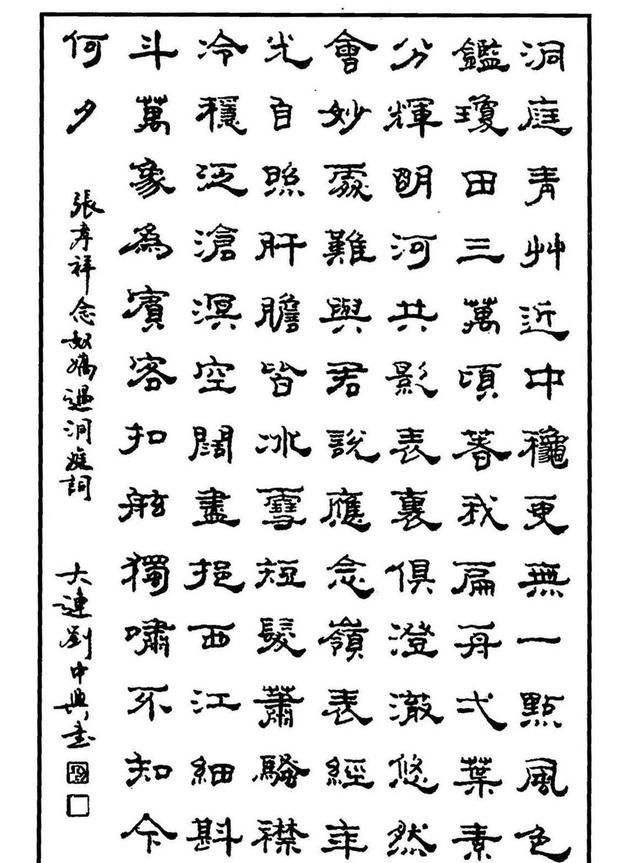 洞庭青艸近中龝更無一點風色
鑑瓊田三萬頃著我扁舟弌葉素
分輝明河共影表裏俱澄澈悠然
會妙處難與君說應念嶺表經年
光自照肝膽皆冰雪短髮蕭騷襟
冷穩泛滄溟空闊盡挹西江細斟
斗萬象為賓客扣舷獨嘯不知今
何夕
張孝祥念奴嬌過洞庭詞 大連劉中興書